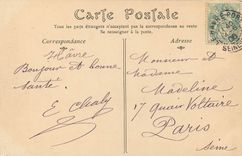 Carte Postale
Tous les pays étrangers n'acceptent pas la correspondance au recto
Se renseigner à la poste.
Correspondance
Adresse
Hâvre
Bonjour et bonne
santé.
E Chaly
Monsieur et
Madame
Madeline
17 quai Voltaire
Paris
Seine